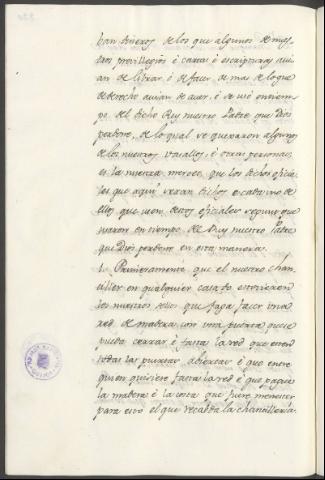 ban dineros de los que algunos de nues
tros previllegios é cartas é escripturas avi
an de librar, é de facer, de mas de lo que
de derecho avian de aver, é de uso en tiem
po del dicho Rey nuestro Padre que Dios
perdone, de lo qual se quexaron algunos
de los nuestros vasallos, é otras personas
es la nuestra merced, que los dichos oficia
les que aqui seran dichos, é cada uno de
ellos que usen de sus oficios segunt que
usaron en tiempo de Rey nuestro Padre
que Dios perdone en esta manera.
1. Primeramente que el nuestro chan
ciller en qualquier casa do estovieren
los nuestros sellos que faga facer una
red de madera con una puerta que se
pueda cerrar, é fasta la red que esten
todas las puertas abiertas é que entre
quien quisiere fasta la red é que pague
la madera é la costa que fuere menester
para esto el que recabda la chancilleria.